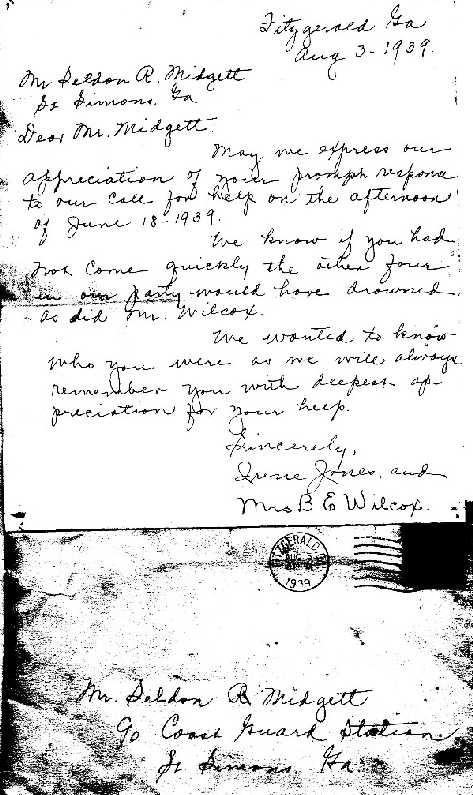 Fitzgerald Ga
Aug 3-1939.
Mr Seldon R. Midgett
St Simons, Ga
Dear Mr. Midgett
May we express our
appreciation of your promph respona
to our call for help on the afternoon
of June 18-1939.
We know if you had
not come quickly the other four
in our party would have drowned
as did Mr. Wilcox.
We wanted to know
who you were as we will always
remember you with deepest ap-
preciation for your help.
Sincerely,
Irene Jones, and
Mrs B E Wilcox.
FITZGERALD
1939
Mr. Seldon R Midgett
c/o Coast Guard Station
St Simons Ga.